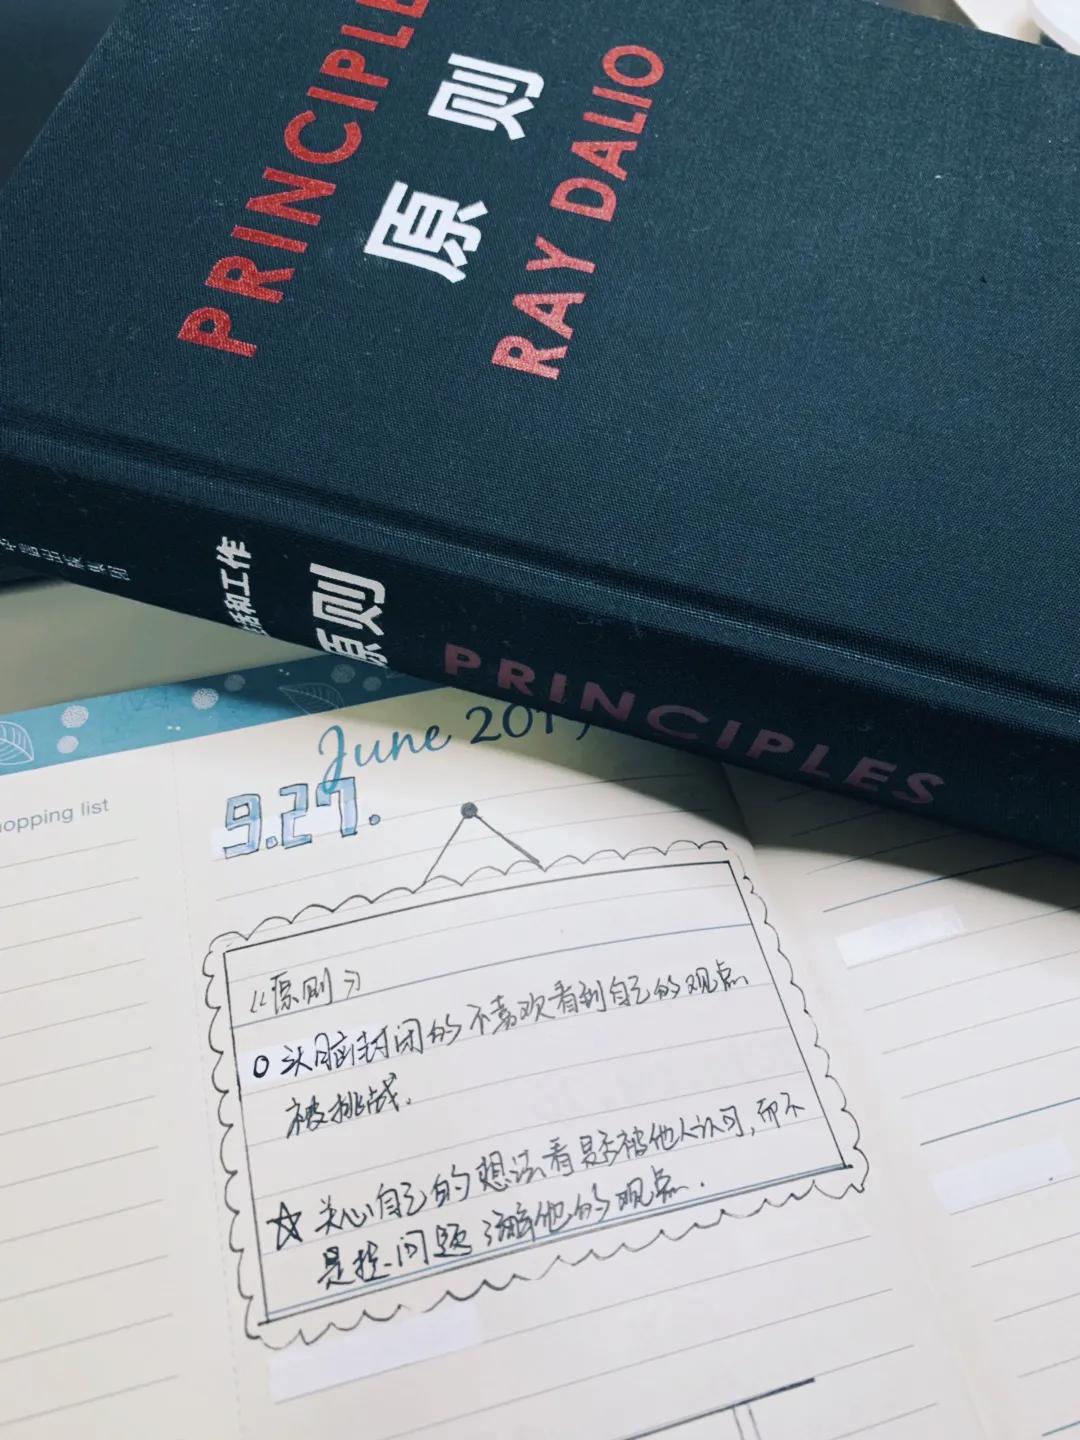 PRINCIPLE
原则
RAY DALIO
活和工作
原则
PRINCIPLES
June 201
opping list
9.27.
《原则》
O 头脑封闭的不喜欢看到自己的观点
被挑战.
☆ 关心自己的想法看是否被他人认可,而不
是提问题了解他的观点.